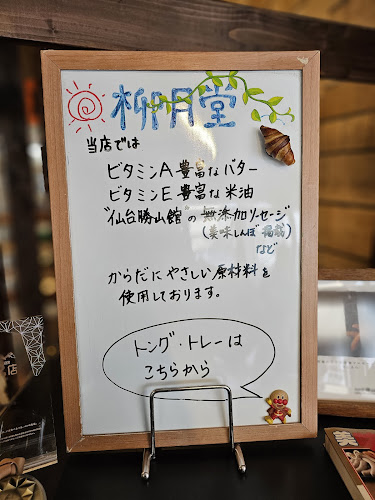 柳月堂
当店では
ビタミンA豊富なバター
ビタミンE豊富な米油
"仙台勝山館"の無添加ソーセージ
(美味しんぼ掲載)
など
からだにやさしい原材料を
使用しております。
トング・トレーは
こちらから
店